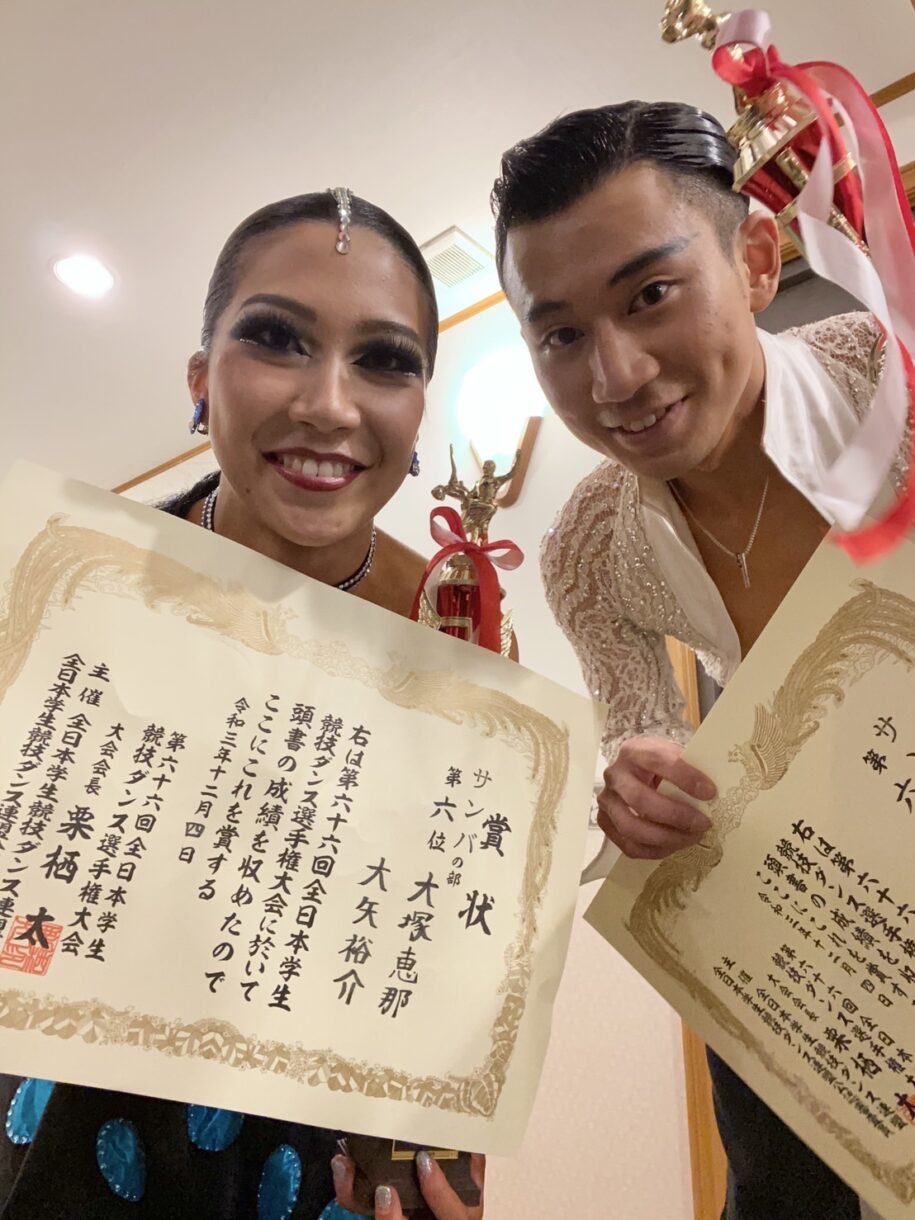 賞状
サンバの部
第六位
大塚恵那
大矢裕介
右は第六十六回全日本学生
競技ダンス選手権大会に於いて
頭書の成績を収めたので
ここにこれを賞する
令和三年十二月四日
第六十六回全日本学生
競技ダンス選手権大会
大会会長 栗栖 太
主催 全日本学生競技ダンス連盟
全日本学生競技ダンス連盟
サ
第六
右は第六十六
競技ダンス選手
頭書の成績を
ここにこれを賞す
令和三年十二月四日
第六十六回全日本
競技ダンス選手権
大会会長 栗栖
主催 全日本学生競技ダンス連盟